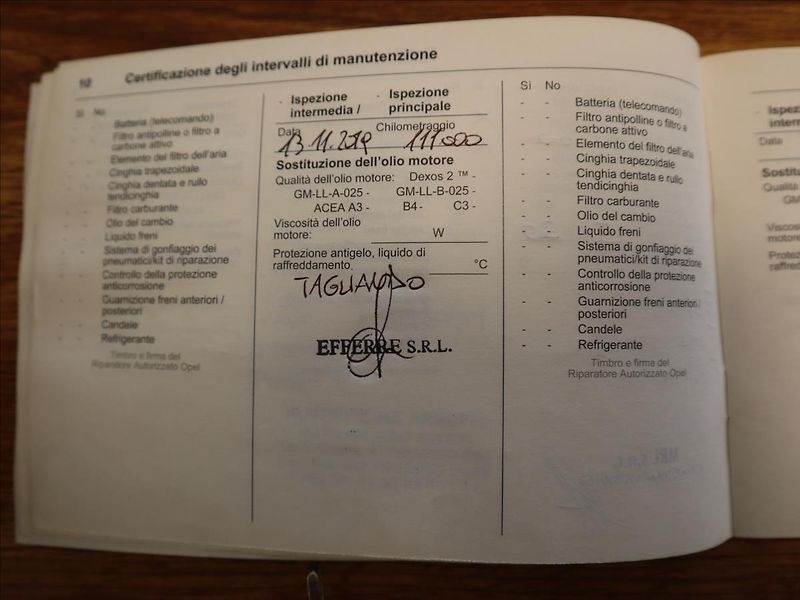 10 Certificazione degli intervalli di manutenzione
Sì No
Batteria (telecomando)
Filtro antipolline o filtro a
carbone attivo
Elemento del filtro dell'aria
Cinghia trapezoidale
Cinghia dentata e rullo
tendicinghia
Filtro carburante
Olio del cambio
Liquido freni
Sistema di gonfiaggio dei
pneumatici/kit di riparazione
Controllo della protezione
anticorrosione
Guarnizione freni anteriori /
posteriori
Candele
Refrigerante
Timbro e firma del
Riparatore Autorizzato Opel
- Ispezione
intermedia /
- Ispezione
principale
Data Chilometraggio
13.11.2019 111000
Sostituzione dell'olio motore
Qualità dell'olio motore: Dexos 2 ™ -
GM-LL-A-025 - GM-LL-B-025 -
ACEA A3 - B4 - C3 -
Viscosità dell'olio
motore: W
Protezione antigelo, liquido di
raffreddamento °C
TAGLIANDO
EFFERRE S.R.L.
Sì No
- - Batteria (telecomando)
- - Filtro antipolline o filtro a
carbone attivo
- - Elemento del filtro dell'aria
- - Cinghia trapezoidale
- - Cinghia dentata e rullo
tendicinghia
- - Filtro carburante
- - Olio del cambio
- - Liquido freni
- - Sistema di gonfiaggio dei
pneumatici/kit di riparazione
- - Controllo della protezione
anticorrosione
- - Guarnizione freni anteriori /
posteriori
- - Candele
- - Refrigerante
Timbro e firma del
Riparatore Autorizzato Opel
Data